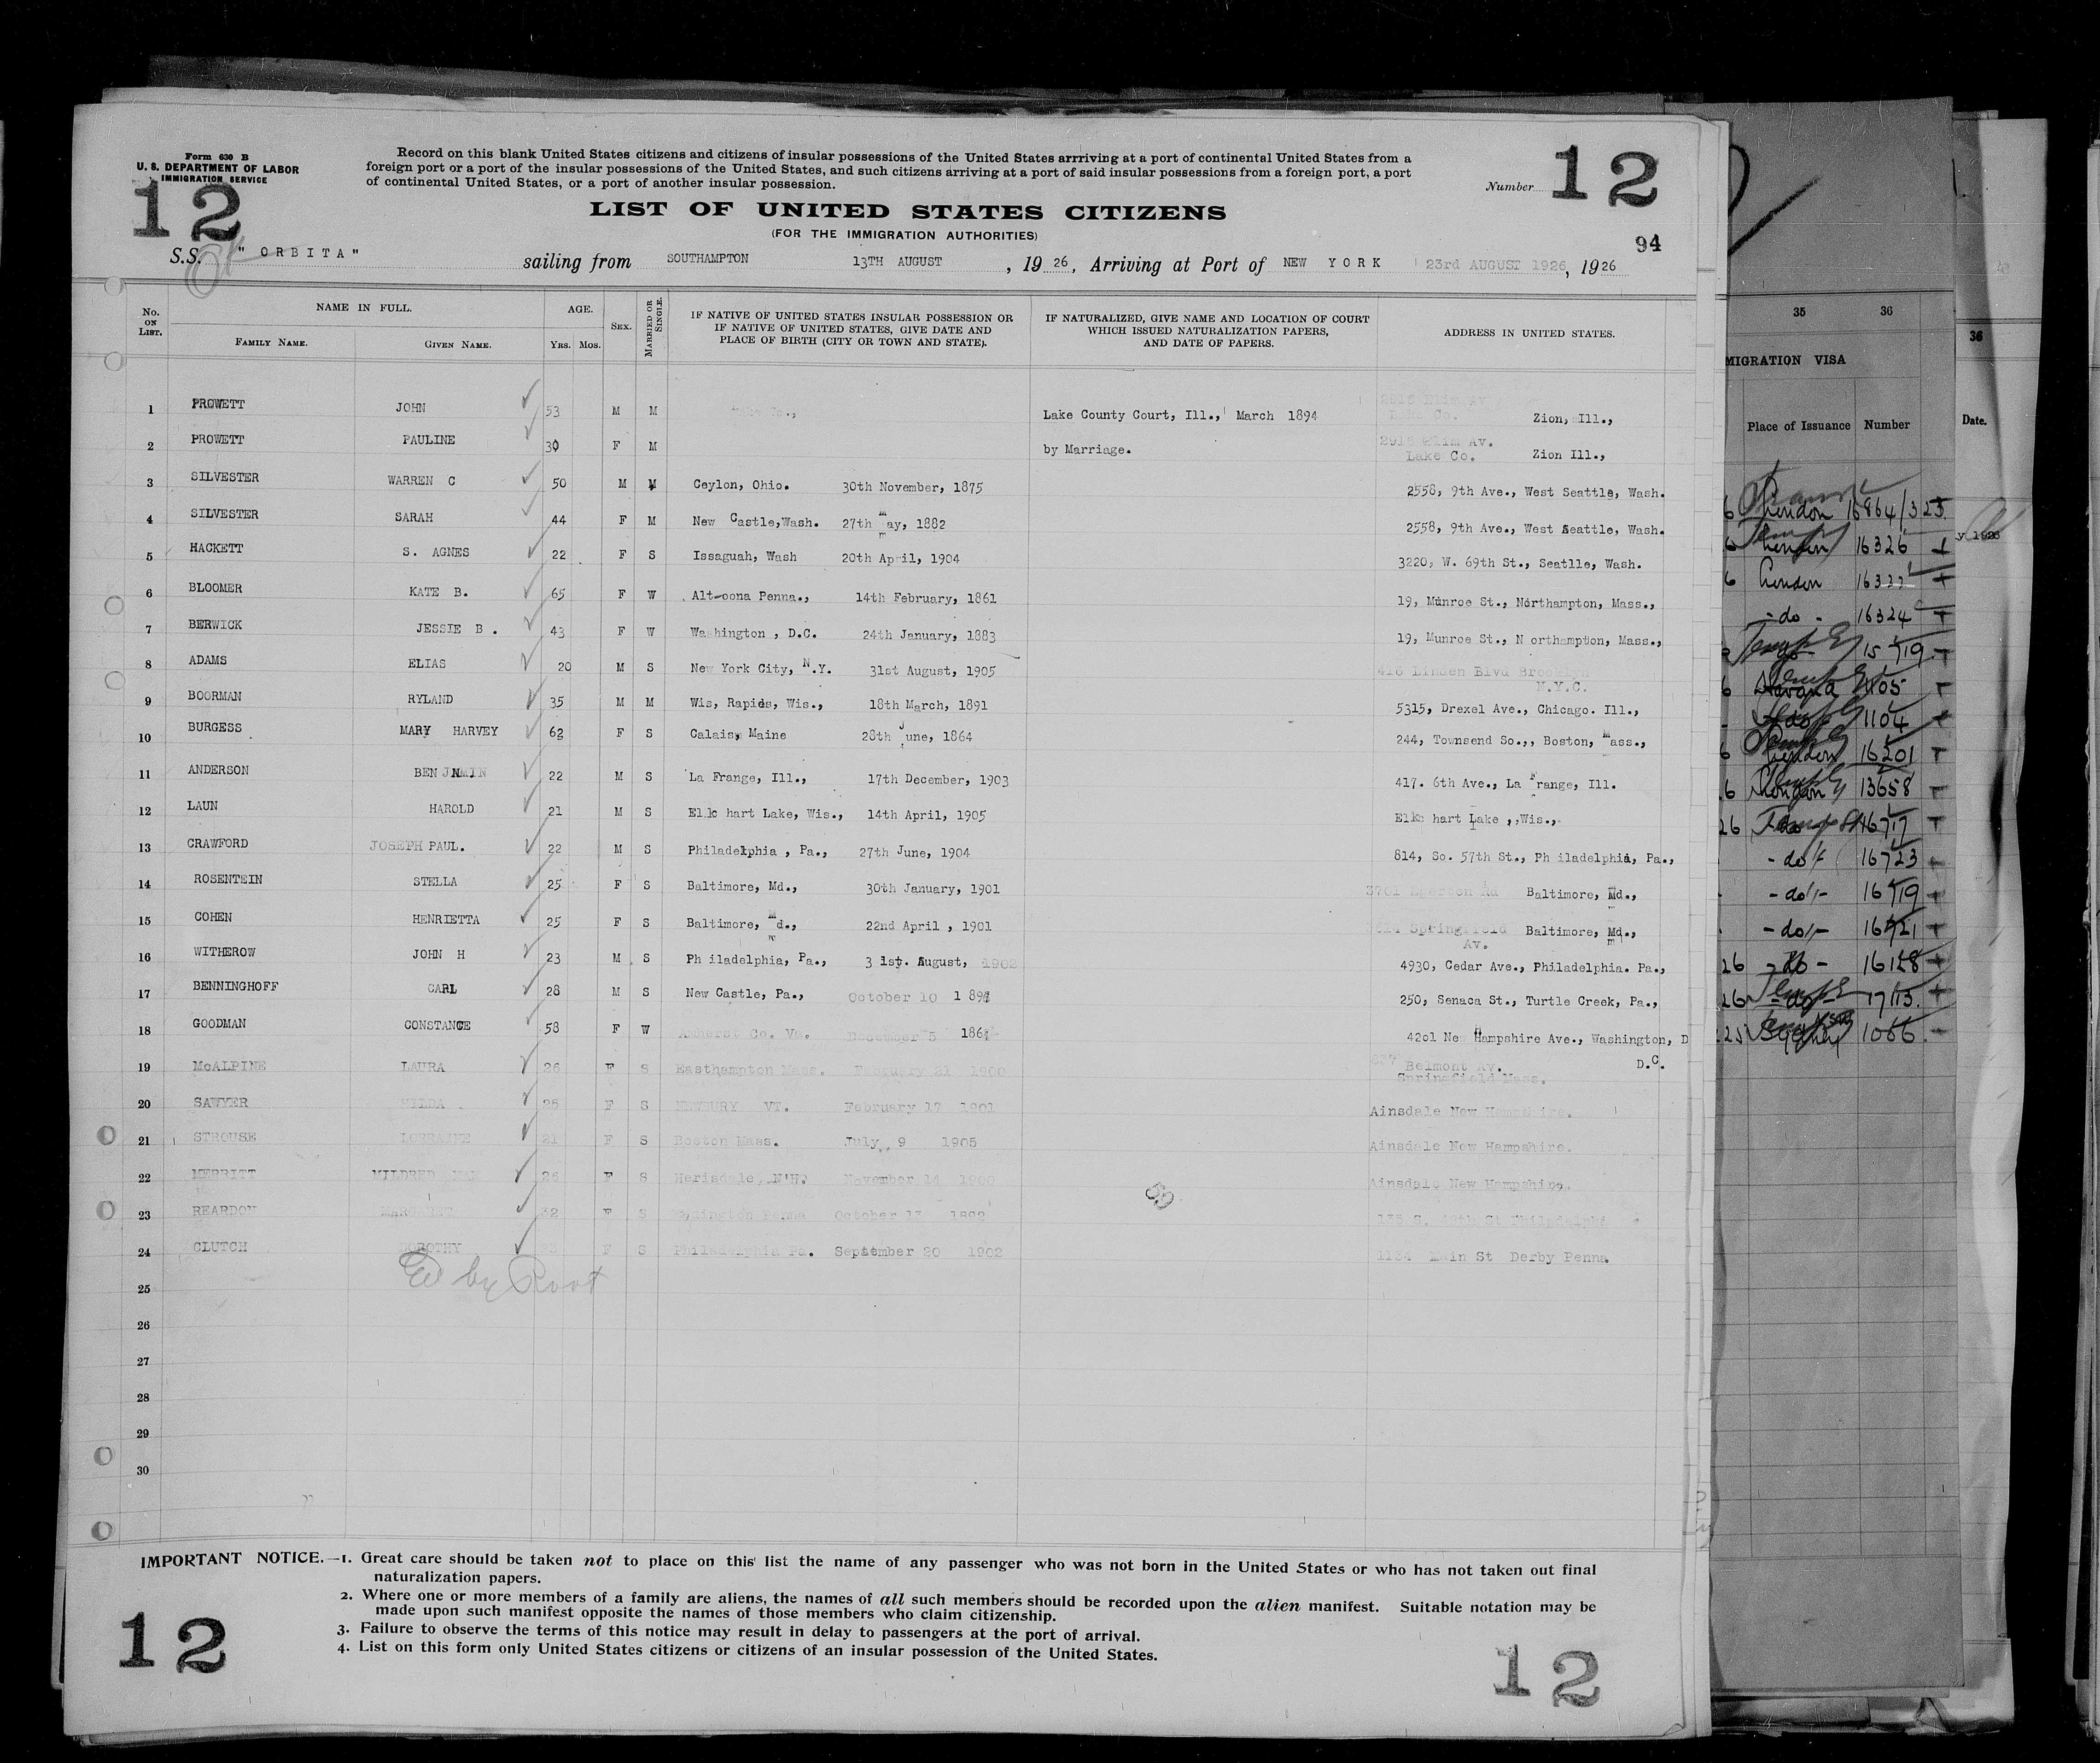 Form 630 B
U. S. DEPARTMENT OF LABOR
IMMIGRATION SERVICE
12
Record on this blank United States citizens and citizens of insular possessions of the United States arrriving at a port of continental United States from a
foreign port or a port of the insular possessions of the United States, and such citizens arriving at a port of said insular possessions from a foreign port, a port
of continental United States, or a port of another insular possession.
Number 12
LIST OF UNITED STATES CITIZENS
(FOR THE IMMIGRATION AUTHORITIES)
94
S.S. "ORBITA" sailing from SOUTHAMPTON 13TH AUGUST, 1926, Arriving at Port of NEW YORK 23rd AUGUST 1926, 1926
No. ON LIST. NAME IN FULL. FAMILY NAME. GIVEN NAME. AGE. YRS. MOS. SEX. MARRIED OR SINGLE. IF NATIVE OF UNITED STATES INSULAR POSSESSION OR IF NATIVE OF UNITED STATES, GIVE DATE AND PLACE OF BIRTH (CITY OR TOWN AND STATE). IF NATURALIZED, GIVE NAME AND LOCATION OF COURT WHICH ISSUED NATURALIZATION PAPERS, AND DATE OF PAPERS. ADDRESS IN UNITED STATES.
1 PROWETT JOHN 53 M M Lake County Court, Ill., March 1894 Lake Co. Zion, Ill.,
2 PROWETT PAULINE 30 F M by Marriage. Av. Lake Co. Zion Ill.,
3 SILVESTER WARREN C 50 M M Ceylon, Ohio. 30th November, 1875 2558, 9th Ave., West Seattle, Wash.
4 SILVESTER SARAH 44 F M New Castle, Wash. 27th may, 1882 2558, 9th Ave., West Seattle, Wash.
5 HACKETT S. AGNES 22 F S Issaguah, Wash 20th April, 1904 3220, W. 69th St., Seatlle, Wash.
6 BLOOMER KATE B. 65 F W Alt-oona Penna., 14th February, 1861 19, Munroe St., Northampton, Mass.,
7 BERWICK JESSIE B. 43 F W Washington, D.C. 24th January, 1883 19, Munroe St., N orthampton, Mass.,
8 ADAMS ELIAS 20 M S New York City, N.Y. 31st August, 1905 416 Linden Blvd N.Y.C.
9 BOORMAN RYLAND 35 M M Wis, Rapids, Wis., 18th March, 1891 5315, Drexel Ave., Chicago. Ill.,
10 BURGESS MARY HARVEY 62 F S Calais, Maine 28th June, 1864 244, Townsend So.,, Boston, mass.,
11 ANDERSON BENJAMIN 22 M S La Frange, Ill., 17th December, 1903 417. 6th Ave., La Frange, Ill.
12 LAUN HAROLD 21 M S Elk hart Lake, Wis., 14th April, 1905 Elk hart Lake,,Wis.,
13 CRAWFORD JOSEPH PAUL. 22 M S Philadelphia, Pa., 27th June, 1904 814, So. 57th St., Ph iladelphia, Pa.,
14 ROSENTEIN STELLA 25 F S Baltimore, Md., 30th January, 1901 Baltimore, Md.,
15 COHEN HENRIETTA 25 F S Baltimore, md., 22nd April, 1901 Springfield Av. Baltimore, Md.,
16 WITHEROW JOHN H 23 M S Ph iladelphia, Pa., 3 1st. August, 1902 4930, Cedar Ave., Philadelphia. Pa.,
17 BENNINGHOFF CARL 28 M S New Castle, Pa., October 10 250, Senaca St., Turtle Creek, Pa.,
18 GOODMAN CONSTANCE 58 F W Amherst Co. Va. December 5 186 4201 New Hampshire Ave., Washington, D
D.C.
19 McALPINE LAURA 26 F S Easthampton Mass. February 21 1900 Belmont Av. Springfield Mass.
20 SAWYER HILDA 25 F S NEWBURY VT. February 17 1901 Ainsdale New Hampshire.
21 STROUSE LORRAINE 21 F S Boston Mass. July 9 1905 Ainsdale New Hampshire.
22 MERRITT MILDRED 26 F S Herisdale, N'H. November 14 1900 Ainsdale New Hampshire.
23 REARDON 32 F S Penna October 13 135 S. St
24 CLUTCH DOROTHY F S Philadelphia Pa. September 20 1902 Main St Derby Penna.
25
26
27
28
29
30
IMPORTANT NOTICE.—1. Great care should be taken not to place on this list the name of any passenger who was not born in the United States or who has not taken out final
naturalization papers.
2. Where one or more members of a family are aliens, the names of all such members should be recorded upon the alien manifest. Suitable notation may be
made upon such manifest opposite the names of those members who claim citizenship.
3. Failure to observe the terms of this notice may result in delay to passengers at the port of arrival.
4. List on this form only United States citizens or citizens of an insular possession of the United States.
12
12
35 36
MIGRATION VISA
Place of Issuance Number
London 16864/323
London 16326
London
- do - 16324
1105
1104
London 16201
London 13658
- do - 16723
- do - 16719
- do - 16721
- do - 16128
36
Date.